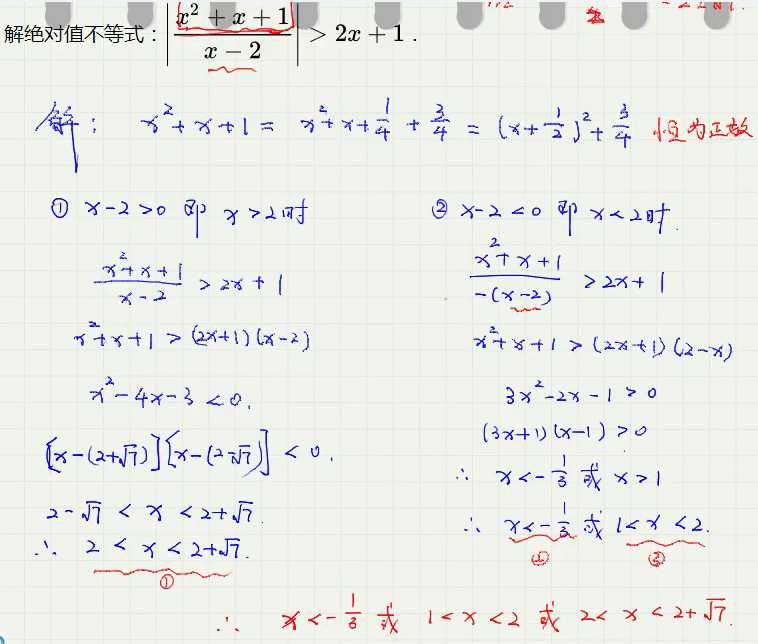 解绝对值不等式：|(x² + x + 1)/(x − 2)| > 2x + 1.
解： x²+x+1 = x²+x+1/4 + 3/4 = (x+1/2)²+3/4 恒为正数
① x-2>0 即 x>2时
(x²+x+1)/(x-2) > 2x+1
x²+x+1 > (2x+1)(x-2)
x²-4x-3 <0.
[x-(2+√7)][x-(2-√7)] < 0.
2-√7 < x < 2+√7.
∴ 2 < x < 2+√7.
①
② x-2<0 即 x<2时.
(x²+x+1)/(-(x-2)) > 2x+1
x²+x+1 > (2x+1)(2-x)
3x²-2x-1 > 0
(3x+1)(x-1) > 0
∴ x<-1/3 或 x>1
∴ x<-1/3 或 1<x<2.
② ③
∴ x<-1/3 或 1<x<2 或 2<x<2+√7.